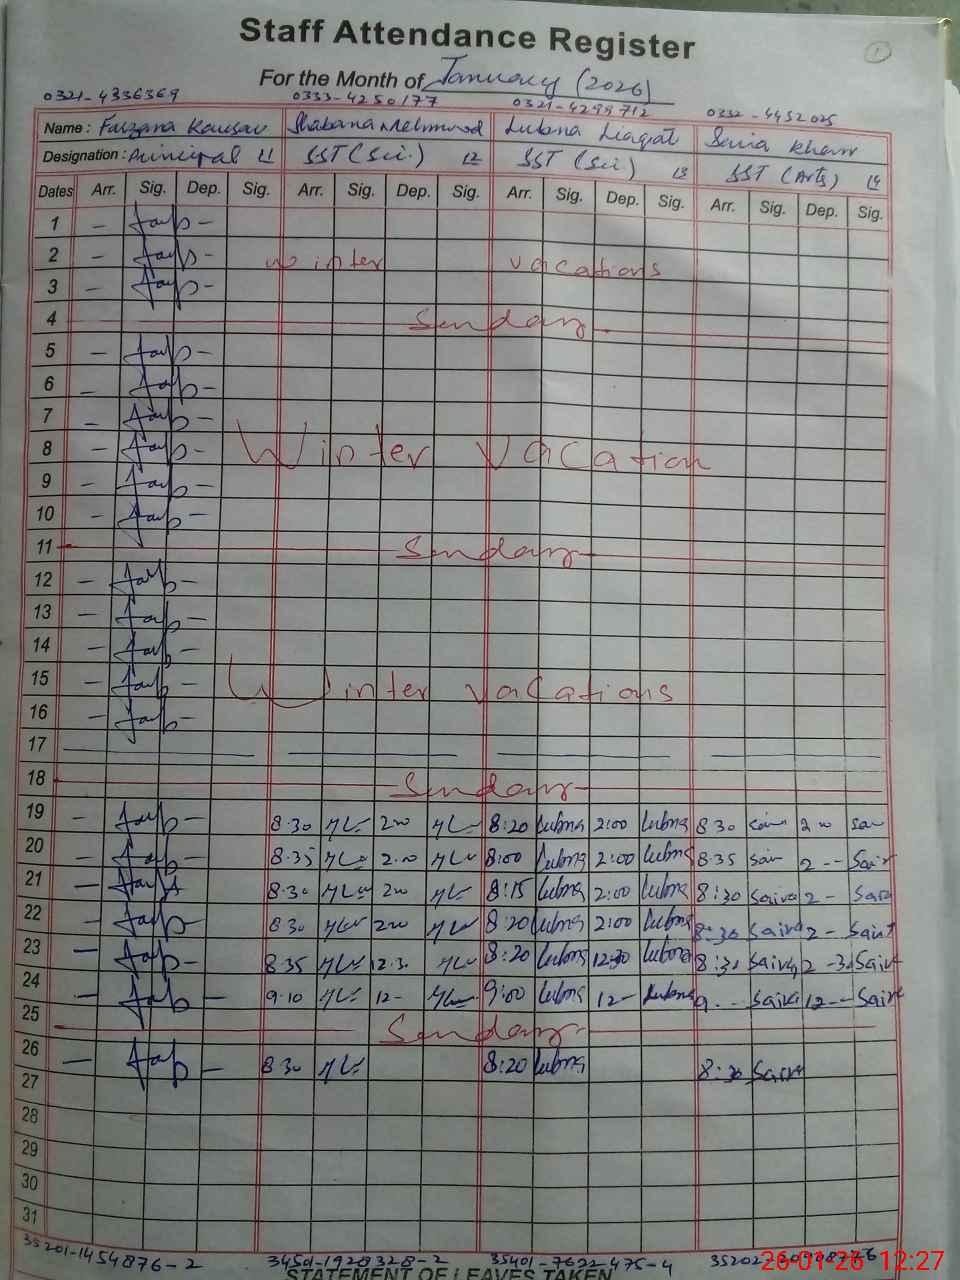 Staff Attendance Register
For the Month of January (2026)
0321-4336369 0333-4250177 0321-4299712 0332-4452025
Name: Faizana Kausar Shabana Mehmood Lubna Liaqat Saira Khan
Designation: Principal 11 SST (Sci.) 12 SST (Sci) 13 SST (Arts) 14
Dates Arr. Sig. Dep. Sig. Arr. Sig. Dep. Sig. Arr. Sig. Dep. Sig. Arr. Sig. Dep. Sig.
1 - -
2 - - Winter vacations
3 - -
4 Sunday.
5 - -
6 - -
7 - -
8 - - Winter vacation
9 - -
10 - -
11 Sunday
12 - -
13 - -
14 - -
15 - - Winter vacations
16 - -
17
18 Sunday
19 - - 8.30 2.00 8:20 Lubna 2:00 Lubna 8 30 2 00
20 - - 8.35 2.00 8:00 Lubna 2:00 Lubna 8.35 2 --
21 - 8.30 200 8:15 Lubna 2:00 Lubna 8:30 Saira 2 - Saira
22 - - 8 30 200 8:20 Lubna 2:00 Lubna 8:30 Saira 2 - Saira
23 - - 8 35 12.3 8:20 Lubna 12:30 Lubna 8:30 Saira Saira
24 - - 9.10 12- 9:00 Lubna 12- Lubna 9.-- Saira 12-- Saira
25 Sunday
26 - - 8 30 8:20 Lubna 8:30 Saira
27
28
29
30
31
35201-1454876-2 34501-1928328-2 35401-7622475-4 35202
26-01-26 12:27
STATEMENT OF LEAVES TAKEN